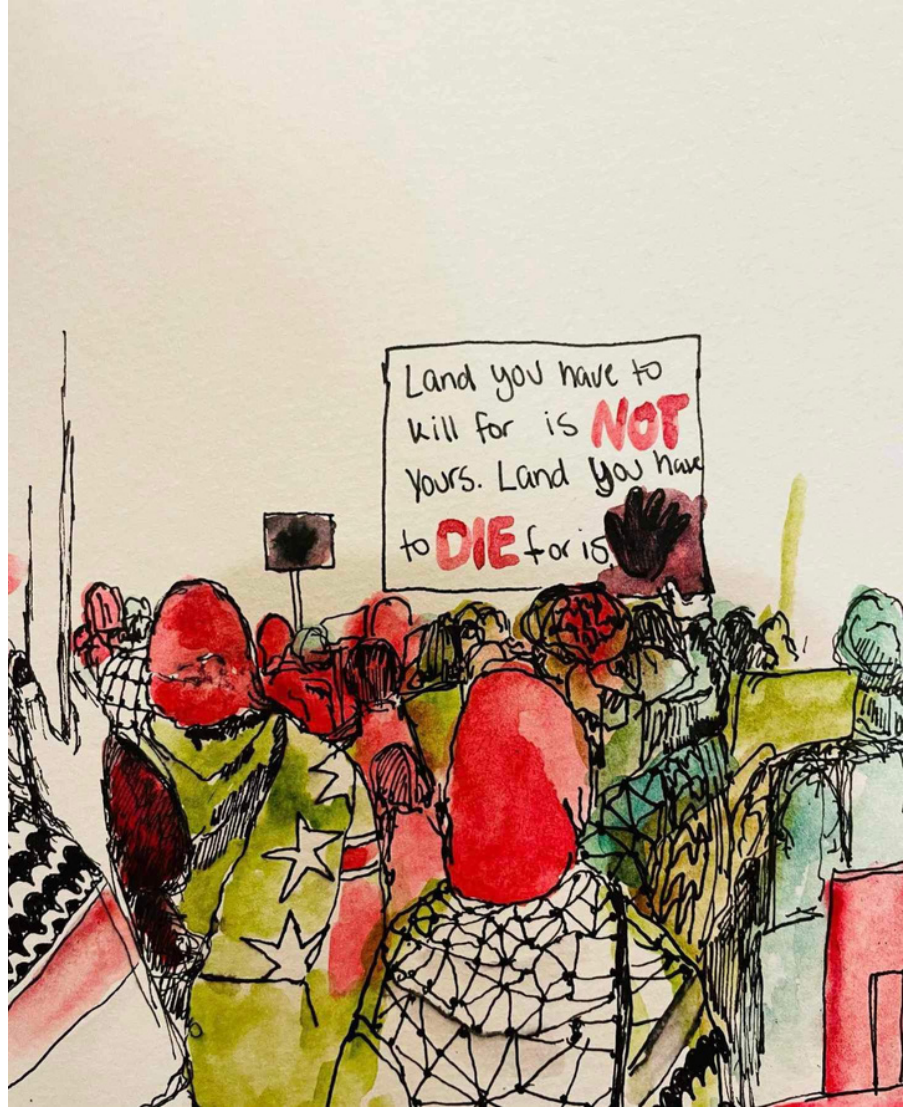 Land you have to
kill for is NOT
yours. Land you have
to DIE for is